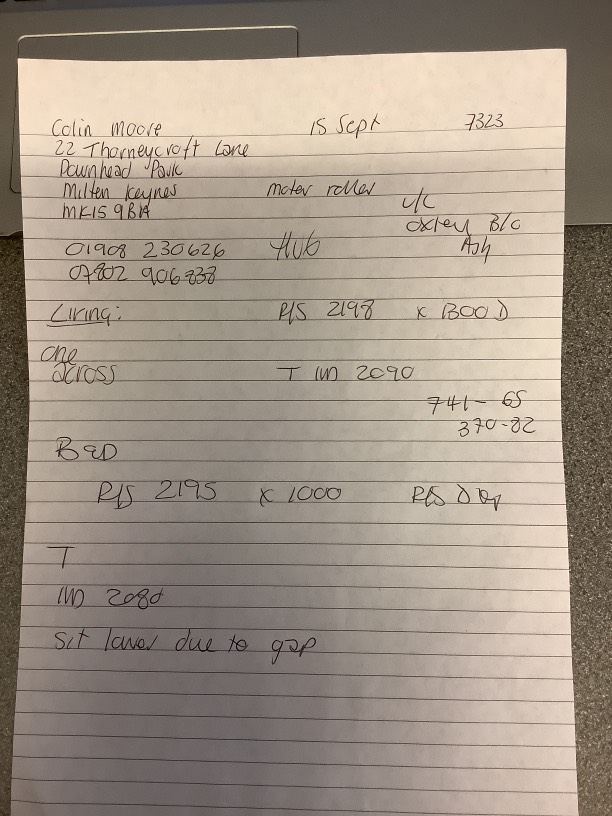 Colin Moore 15 Sept 7323
22 Thorneycroft Lane
Downhead Park
Milten Keynes motor roller
MK15 9BA u/c
oxley B/O
01908 230626 Hub Ash
07802 906838
Living: R/S 2198 x 1300 D
one
across T IM 2090
741-65
370-82
BED
R/S 2195 x 1000 R/S D
T
IM 2080
Sit lower due to gap